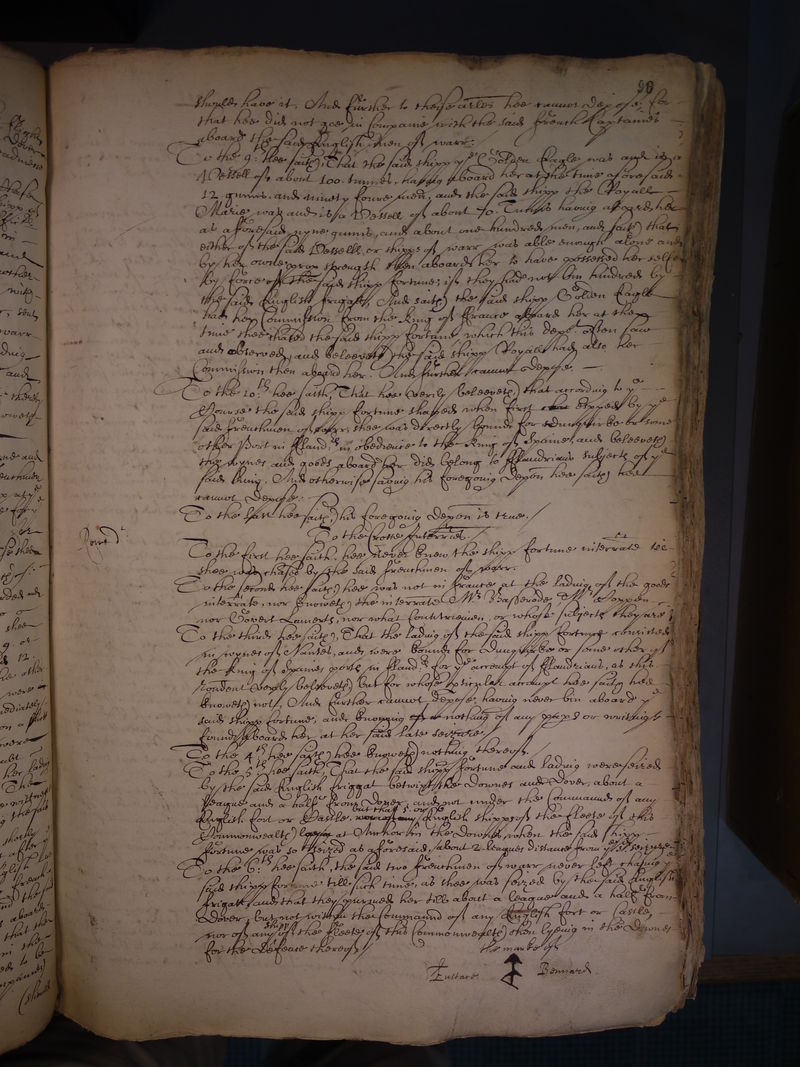 90
should have it. And further to these arles hee cannot depose, for
that hee did not goe in Companie with the said french Captaines
aboard the said English men of warr.
To the 9: hee saith, That the said shipp ye Golden Eagle was and is a
Vessell of about 100 tunnes, having aboard her at the time aforesaid
12 gunns, and ninety foure men, and the said shipp the Royall
Marie was and is a Vessell of about 70. Tunns having aboard her
as aforesaid nyne gunns, and about one hundred men, and saith that
either of the said Vessells or shipps of warr was able enough alone and
by her owne strength then aboard her to have possessed her selfe
by force of the said shipp fortune, if they had not bin hindred by
the said English frigatt, And saith the said shipp Golden Eagle
had her Commission from the King of France aboard her at the
time shee chased the said shipp fortune, which this depot often saw
and observed, and beleeveth the said shipp Royall had also her
Commission then aboard her. And further cannot depose.
To the 10.th hee saith, That hee verily beleeveth that according to ye
Course the said shipp fortune steered when first espyed by ye
said frenchmen of warr, shee was directly bound for Dunquirke or some
other Port in fland.rs in obedience to the King of Spaine, and beleeveth
the wynes and goods aboard her did belong to fflandrians subjects of ye
said King. And otherwise saving his foregoing depon hee saith hee
cannot depose.
To the last hee saith his foregoing depon is true./
To the Crosse Interries.
To the first hee saith, hee never knew the shipp fortune interrate till
shee was chased by the said frenchmen of warr.
To the second hee saith hee was not in france at the lading of the goods
interrate, nor knoweth the interrate Mr Basserode, Mr Joppen
nor Govert Lamerts, nor what Countriemen, or whose subjects they are
To the third hee saith, That the lading of the said shipp fortune consisted
in wynes of Nantes, and were bound for Dunquirke or some other of
the King of Spaines ports in fland.rs for ye accompt of fflandrians, as this
rendent verily beleeveth but for whose perticular accompt hee saith hee
knoweth not, And further cannot depose, having never bin aboard ye
said shipp fortune, and knowing nothing of any papers or writings
found aboard her at her said late seizure.
To the 4th hee saith hee knoweth nothing thereof.
To the 5th hee saith, That the said shipp fortune and lading were seized
by the said English friggat betwixt the Downes and Dover, about a
league and a half from Dover, and not under the Command of any
English fort or Castle, but that 5. or six English shipps of the fleete of this
Commonwealth lay at Anchor in the Downes, when the said shipp
fortune was so seized as aforesaid, about 2 leagues distance from ye place of seizure
To the 6.th hee saith, the said two frenchmen of warr never left chasing ye
said shipp fortune till such time, as shee was seized by the said English
frigatt and that they pursued her till about a league and a half from
Dover, but not within the Command of any English fort or Castle,
nor of any shipps of the fleete of this Commonwealth then lyeing in the Downes
for the defence thereof/
the marke of
Eustace Bennard